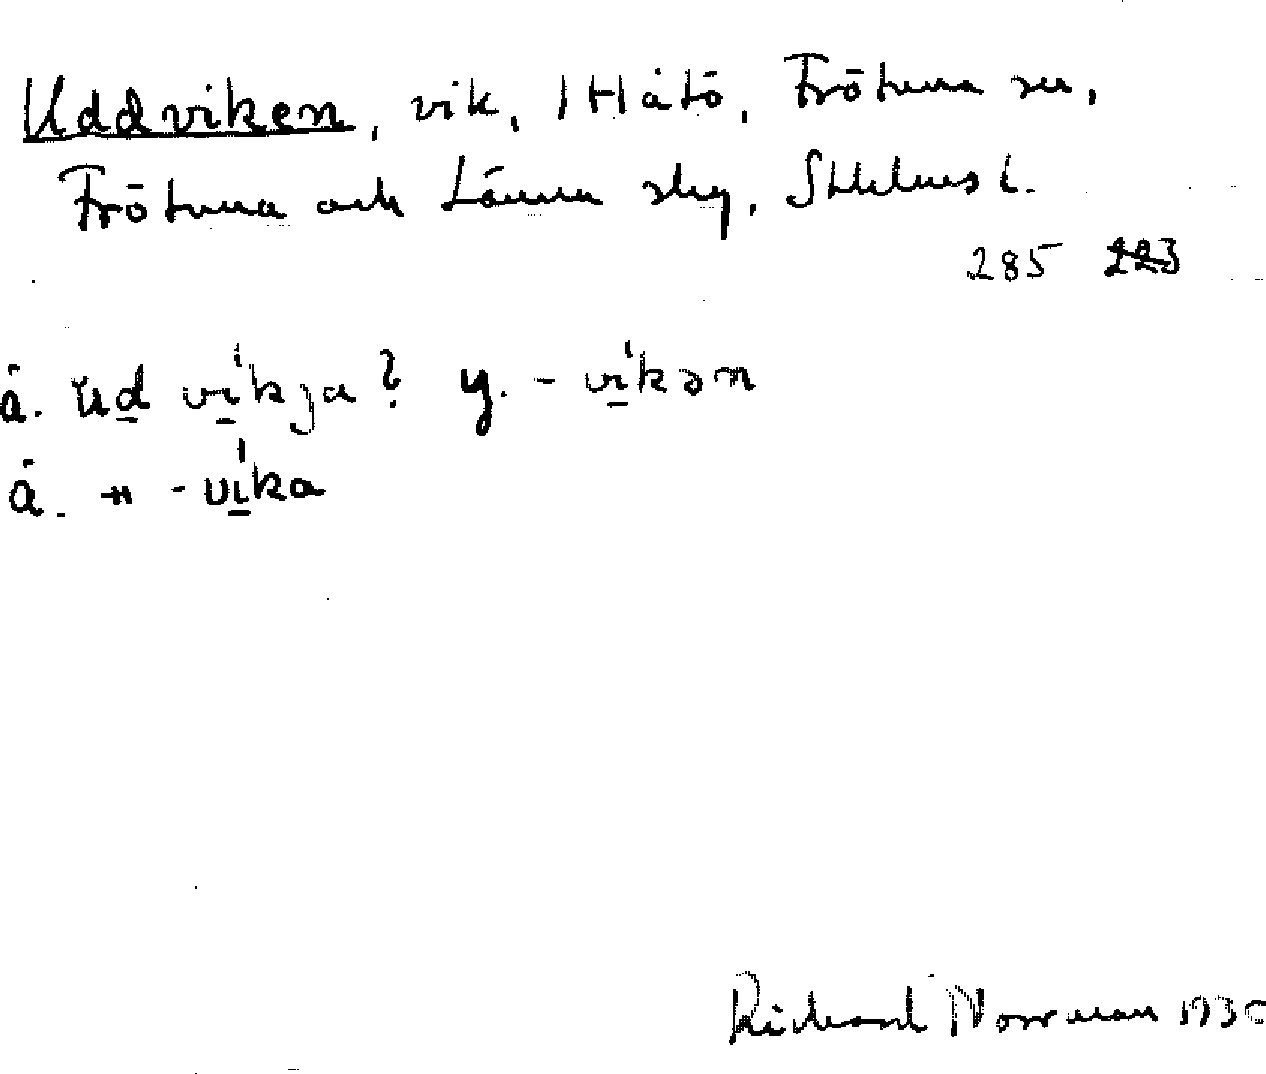 Uddviken, vik, Håtö, Frötuna sn,
Frötuna och Länna skg, Sthlms l.
285 223
ä. ud víkja? y. - víkən
ä. " - víka
Richard Norrman 193